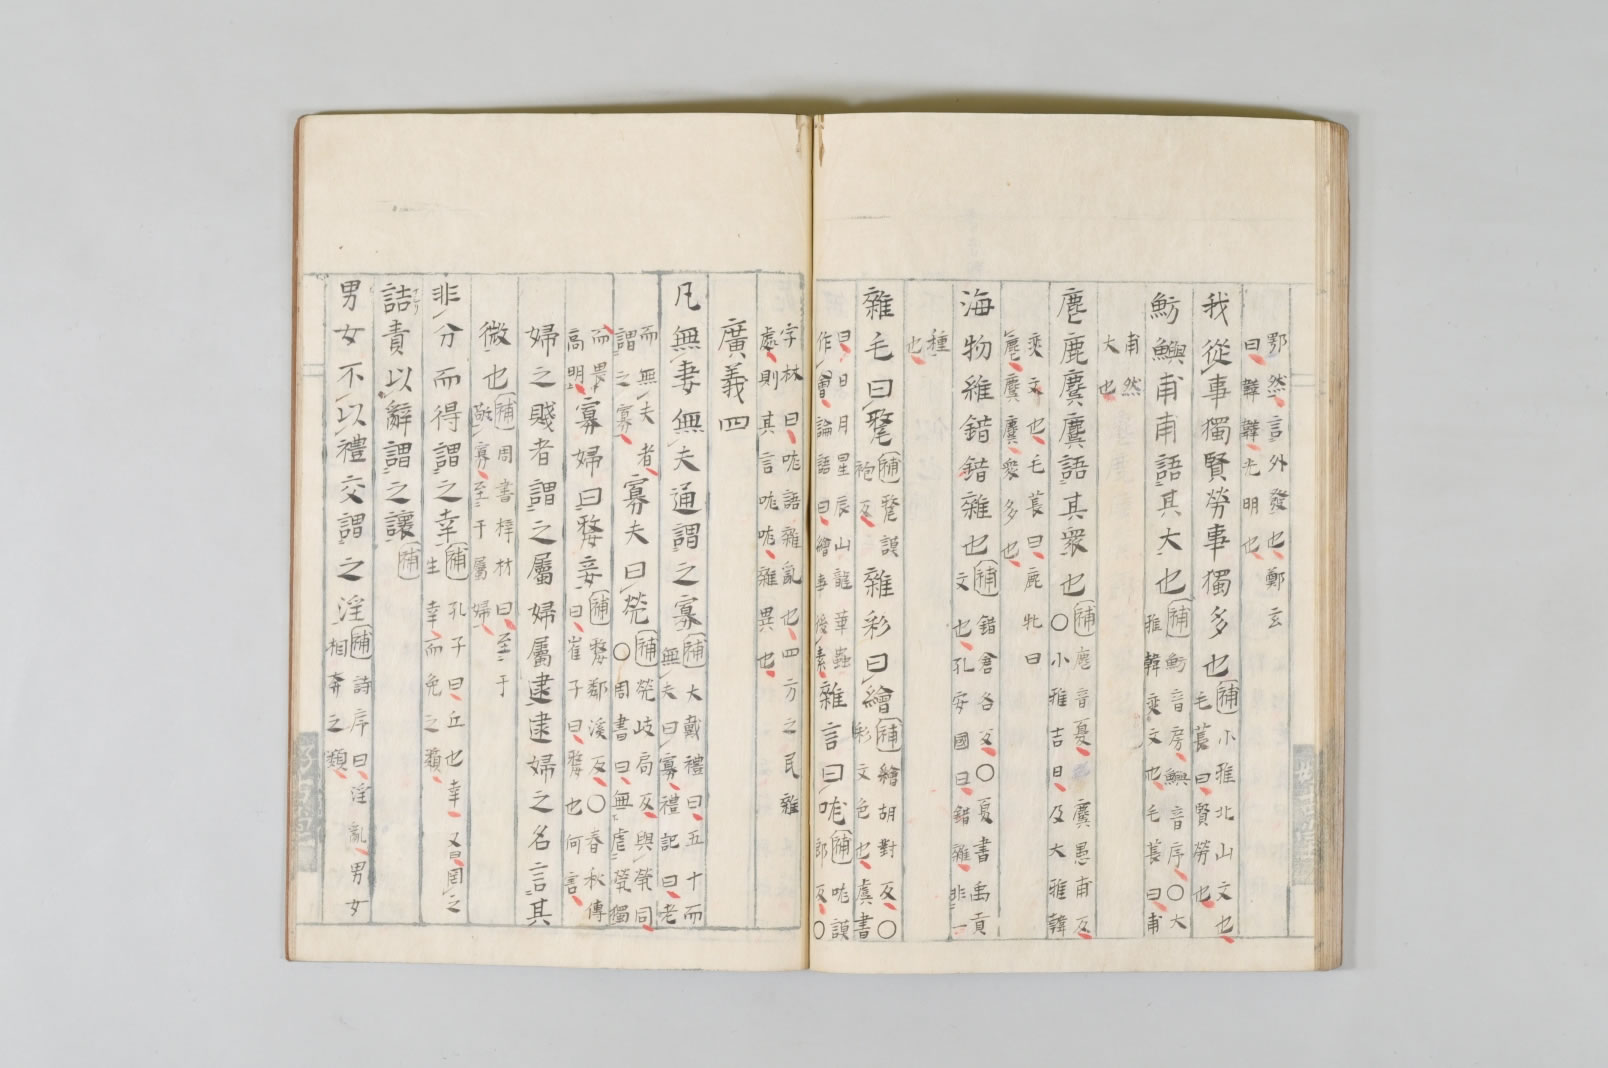 鄂然言外發也鄭玄
曰韡韡光明也
我從事獨賢勞事獨多也
補小雅北山文也
毛萇曰賢勞也
魴鱮甫甫語其大也
補魴音房鱮音序〇大
雅韓奕文也毛萇曰甫
甫然
大也
麀鹿麌麌語其衆也
補麀音憂麌愚甫反
〇小雅吉日及大雅韓
奕文也毛萇曰鹿牝曰
麀麌麌衆多也
海物雜錯錯雜也
補錯倉各反〇夏書禹貢
文也孔安國曰錯雜非一
種
也
雜毛曰氂
補氂謨
袍反
雜彩曰繪
補繪胡對反〇
彩文色也虞書
曰日月星辰山龍華蟲
作會論語曰繪事後素
雜言曰哤
補哤謨
郎反〇
字林曰哤語雜亂也四方之民雜
處則其言哤哤雜異也
廣義四
凡無妻無夫通謂之寡
補大戴禮曰五十而
無夫曰寡禮記曰老
而無夫者
謂之寡
寡夫曰煢
補煢岐局反與㷀同
〇周書曰無虐㷀獨
而畏
高明
寡婦曰嫠妾
補嫠鄰溪反〇春秋傳
曰崔子曰嫠也何言
婦之賤者謂之屬婦屬逮逮婦之名言其
微也
補周書梓材曰至于
敬寡至于屬婦
非分而得謂之幸
補孔子曰丘也幸又曰罔之
生幸而免之類
詰責以辭謂之讓補
男女不以禮交謂之淫
補詩序曰淫亂男女
相奔之類